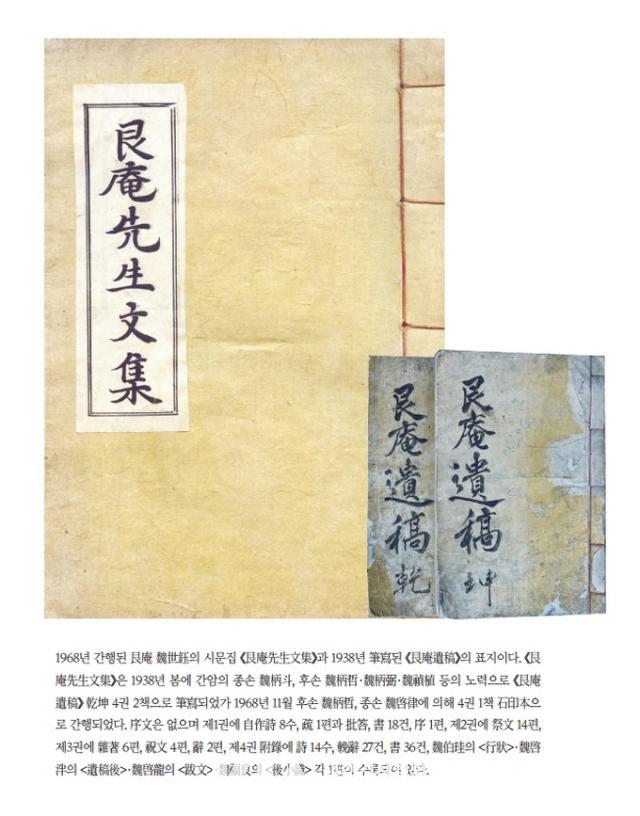 艮庵先生文集
艮庵遺稿 乾
艮庵遺稿 坤
1968년 간행된 艮庵 魏世鈺의 시문집 《艮庵先生文集》과 1938년 筆寫된 《艮庵遺稿》의 표지이다. 《艮
庵先生文集》은 1938년 봄에 간암의 종손 魏柄斗, 후손 魏柄哲·魏柄弼·魏禎植 등의 노력으로 《艮庵
遺稿》 乾坤 4권 2책으로 筆寫되었가 1968년 11월 후손 魏柄哲, 종손 魏啓律에 의해 4권 1책 石印本으
로 간행되었다. 序文은 없으며 제1권에 自作詩 8수, 疏 1편과 批答, 書 18건, 序 1편, 제2권에 祭文 14편,
제3권에 雜著 6편, 祝文 4편, 辭 2편, 제4권 附錄에 詩 14수, 輓辭 27건, 書 36건, 魏伯珪의 <行狀>·魏啓
泮의 <遺稿後>·魏啓龍의 <跋文>· 의 <後小識> 각 1편이 수록되어 있다.